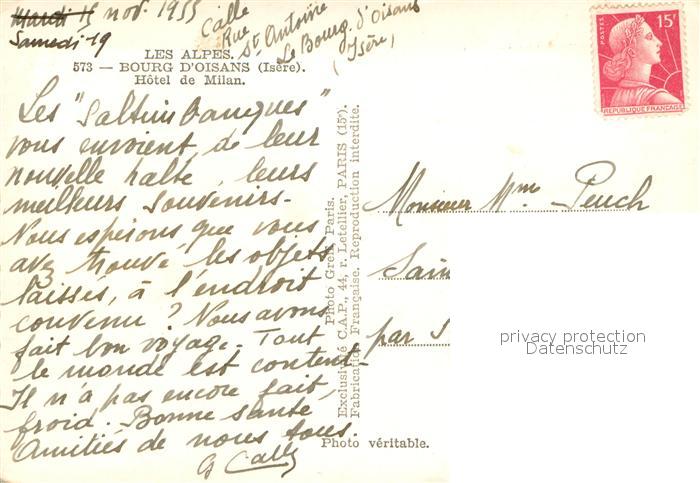 Mardi 15 nov. 1955
Samedi 19
Calle
Rue St Antoine
Le Bourg d'Oisans
(Isère)
LES ALPES.
573 — BOURG D'OISANS (Isère).
Hôtel de Milan.
Les "Saltimbanques"
vous envoient, de leur
nouvelle halte, leurs
meilleurs souvenirs-
Nous espérons que vous
avez trouvé les objets
laissés, à l'endroit
convenu ? Nous avons
fait bon voyage. Tout
le monde est content-
Il n'a pas encore fait
froid. Bonne santé
Amitiés de nous tous.
Photo Greff, Paris.
Exclusivité C.A.P., 44, r. Letellier, PARIS (15e).
Fabrication Française. Reproduction interdite.
Photo véritable.
POSTES
15F
REPUBLIQUE FRANÇAISE
Monsieur Mme Peuch
Sain
par S
privacy protection
Datenschutz